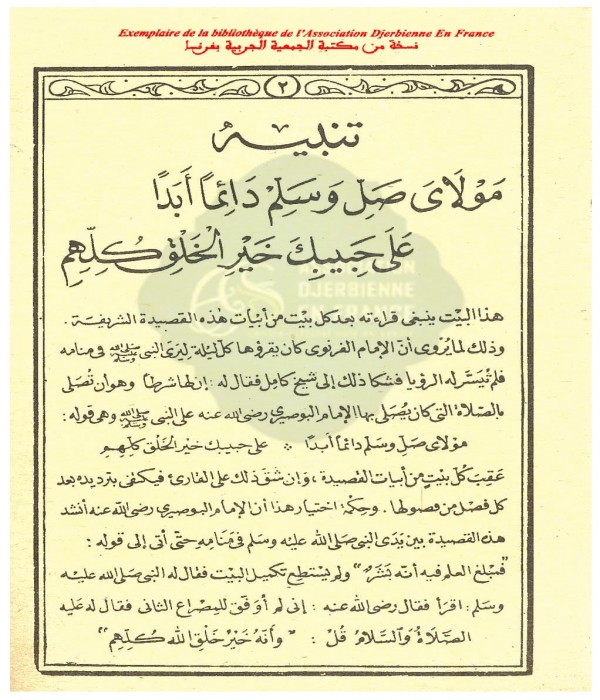 Exemplaire de la bibliothèque de l'Association Djerbienne En France
نسخة من مكتبة الجمعية الجربية بفرنسا
٢
تنبيه
مَوْلَايَ صَلِّ وَسَلِّمْ دَائِماً أَبَدًا
عَلَى حَبِيبِكَ خَيْرِ الْخَلْقِ كُلِّهِمِ
ASSOCIATION
DJERBIENNE
EN FRANCE
هذا البيت ينبغى قراءته بعد كل بيت من أبيات هذه القصيدة الشريفة .
وذلك لما يُروى أنّ الإمام الغزنوى كان يقرؤها كلّ ليلة ليرى النبى ﷺ فى منامه
فلم تَيَسَّر له الرؤيا فشكا ذلك إلى شيخ كامل فقال له : إن لها شرطاً وهو أن تُصَلى
بالصَّلاة التى كان يُصَلى بها الإمام البوصيرى رضى الله عنه على النبى ﷺ وهى قوله :
مولاى صَلِّ وسلم دائماً أبدًا ٠ على حبيبك خيرِ الخلق كلِّهِمِ
عَقِبَ كُلّ بيتٍ من أبيات القصيدة ، وإن شقّ ذلك على القارئ فيكتفى بترديده بعد
كل فصل من فصولها . وحِكمة اختيار هذا أن الإمام البوصيرى رضى الله عنه أنشد
هذه القصيدة بين يَدَى النبى صَلى الله عليه وسلم فى مَنَامِهِ حتّى أتى إلى قوله :
"فمبلغ العلم فيه أنّه بَشَرٌ" ولم يستطع تكميل البيت فقال له النبى صَلى الله عليه
وسَلم : اقرأ فقال رضى الله عنه : إنى لم أوَفَّق للمِصراع الثانى فقال له عَليه
الصَّلَاةُ وَالسَّلامُ قُلْ : " وَأنّهُ خَيْرُ خَلْقِ اللهِ كُلِّهِمِ "